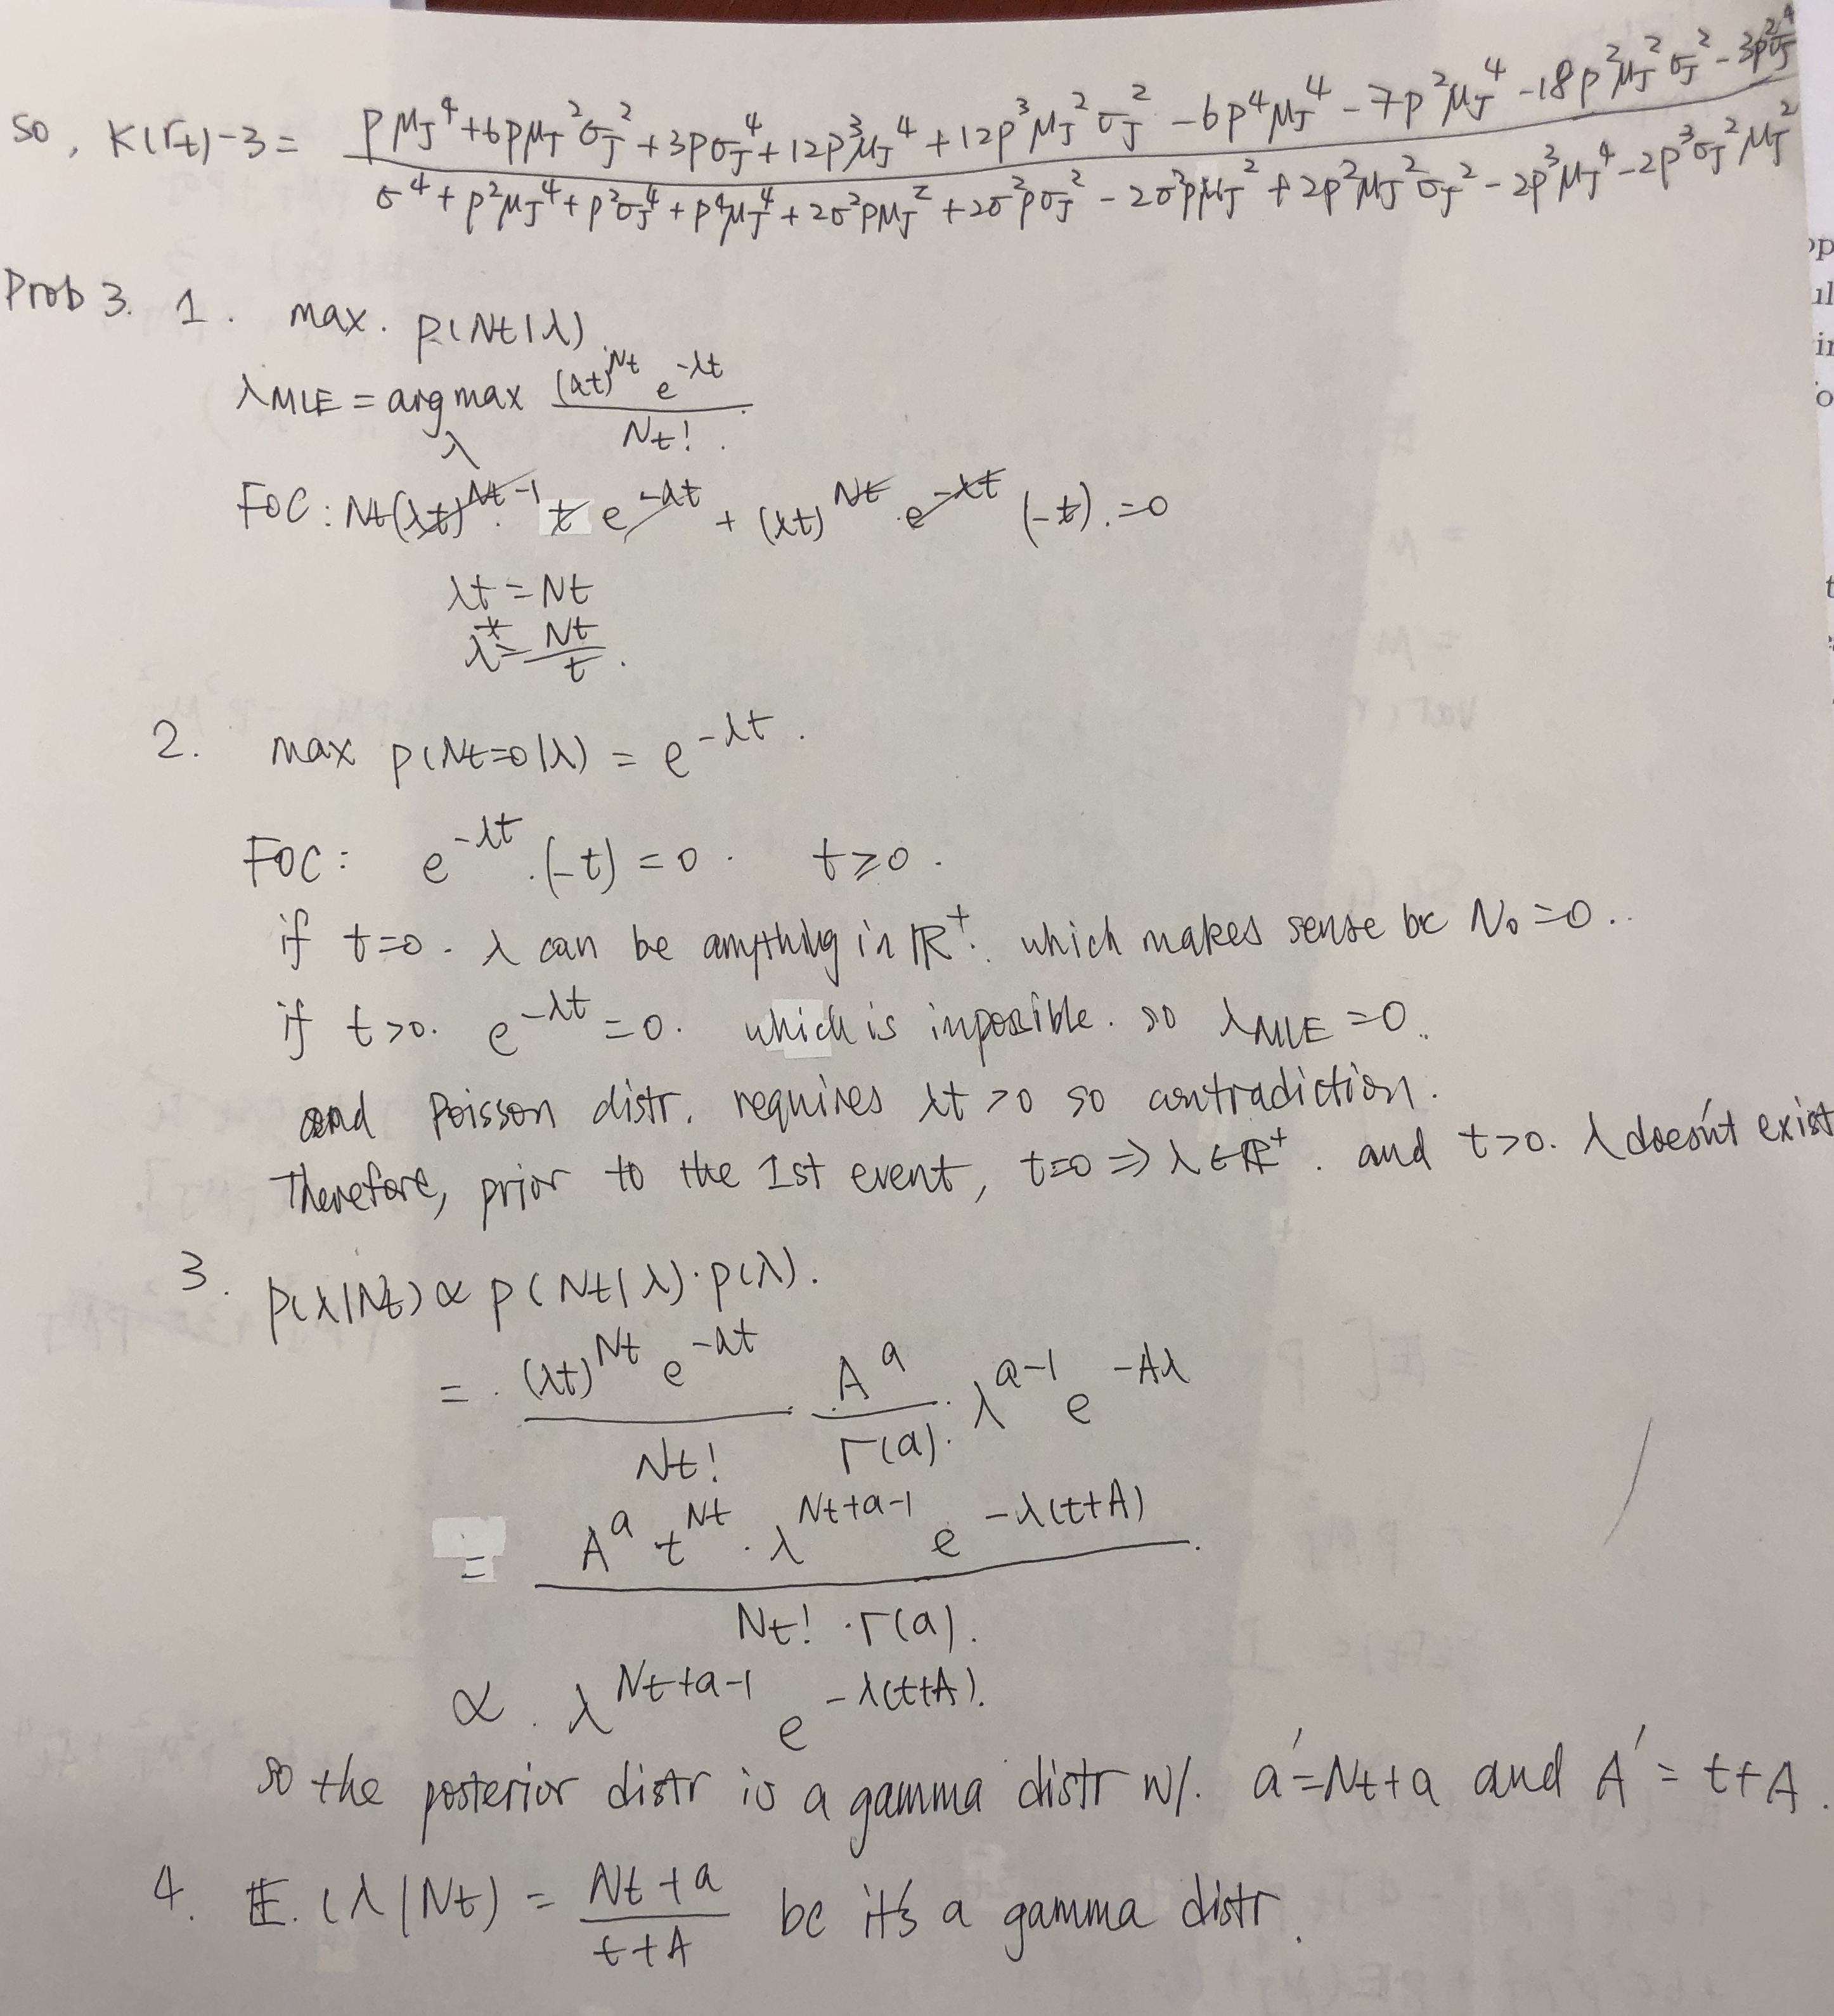 so, K(rt)-3 = (pμ_J^4 + 6pμ_J^2σ_J^2 + 3pσ_J^4 + 12p^3μ_J^4 + 12p^3μ_J^2σ_J^2 - 6p^4μ_J^4 - 7p^2μ_J^4 - 18p^2μ_J^2σ_J^2 - 3p^2σ_J^4) / (σ^4 + p^2μ_J^4 + p^2σ_J^4 + p^4μ_J^4 + 2σ^2pμ_J^2 + 2σ^2pσ_J^2 - 2σ^2p^2μ_J^2 + 2p^2μ_J^2σ_J^2 - 2p^3μ_J^4 - 2p^3σ_J^2μ_J^2)
Prob 3. 1. max. p(Nt|λ)
λ_MLE = arg max_λ (λt)^Nt e^-λt / Nt!.
FOC: Nt(λt)^Nt-1 t e^-λt + (λt)^Nt · e^-λt (-t). = 0
λt = Nt
λ* = Nt/t.
2. max p(Nt=0|λ) = e^-λt.
FOC: e^-λt ·(-t) = 0. t≥0.
if t=0. λ can be anything in ℝ^+. which makes sense bc N_0=0..
if t>0. e^-λt = 0. which is impossible. so λ_MLE = 0.
and Poisson distr. requires λt>0 so contradiction.
Therefore, prior to the 1st event, t=0 ⇒ λ∈ℝ^+. and t>0. λ doesn't exist
3. p(λ|Nt) ∝ p(Nt|λ)·p(λ).
= (λt)^Nt e^-λt / Nt! · A^a / Γ(a) · λ^a-1 e^-Aλ
= A^a t^Nt · λ^Nt+a-1 e^-λ(t+A) / Nt! ·Γ(a).
∝. λ^Nt+a-1 e^-λ(t+A).
so the posterior distr is a gamma distr w/. a'=Nt+a and A' = t+A.
4. E.(λ|Nt) = Nt+a / t+A bc it's a gamma distr.